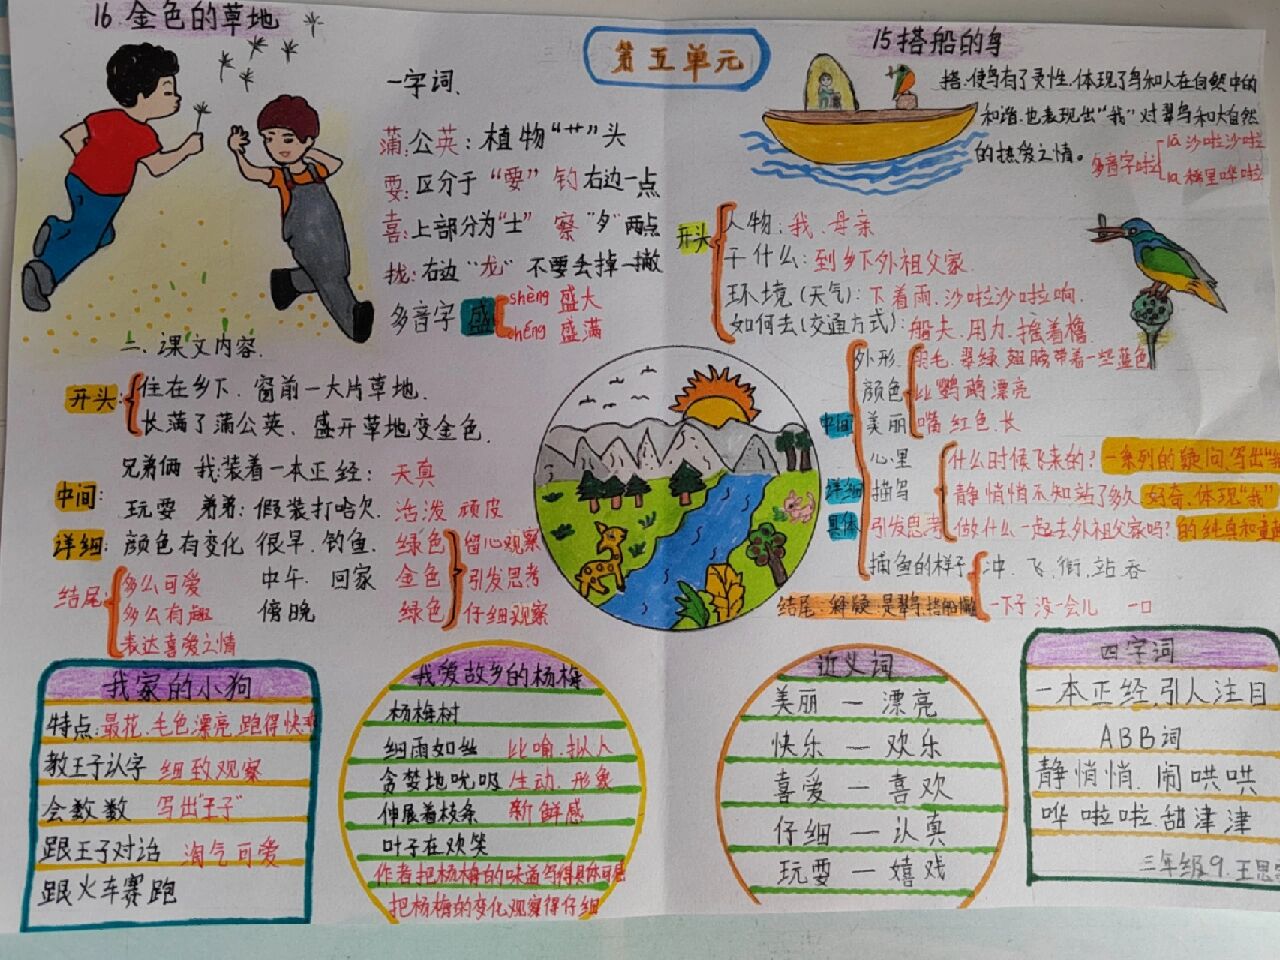 第五单元
16.金色的草地
一字词.
蒲:公英:植物“艹”头
耍:区分于“要” 钓 右边一点
喜:上部分为“士” 察 “夕”两点
拢:右边“龙”不要丢掉一撇
多音字 盛
shèng 盛大
chéng 盛满
二.课文内容.
开头:
住在乡下、窗前一大片草地.
长满了蒲公英、盛开草地变金色.
中间:
详细:
兄弟俩 我:装着一本正经: 天真
玩耍 着着: 假装打哈欠. 活泼 顽皮
颜色有变化 很早.钓鱼. 绿色 留心观察
中午. 回家 金色 引发思考
傍晚 绿色 仔细观察
结尾:
多么可爱
多么有趣
表达喜爱之情
15搭船的鸟
搭:使鸟有了灵性.体现了鸟和人在自然中的
和谐.也表现出“我”对翠鸟和大自然
的热爱之情。
多音字啦
lā 沙啦沙啦
la 稀里哗啦
开头
人物:我、母亲
干什么:到乡下外祖父家.
环境(天气):下着雨.沙啦沙啦响.
如何去(交通方式):船夫.用力.摇着橹.
中间
详细
具体
外形. 羽毛.翠绿.翅膀带着一些蓝色
颜色 比鹦鹉漂亮
美丽 嘴 红色.长
心里 什么时候飞来的? 一系列的疑问.写出“我
描写 静悄悄不知站了多久 好奇、体现“我”
引发思考 做什么一起去外祖父家吗? 的纯真和童
捕鱼的样子 冲.飞.衔.站.吞
一下子 没一会儿 一口
结尾:解疑:是翠鸟.搭船捕
我家的小狗
特点:最花.毛色漂亮.跑得快
教王子认字 细致观察
会数数 写出“王子”
跟王子对话 淘气可爱
跟火车赛跑
我爱故乡的杨梅
杨梅树
细雨如丝 比喻.拟人
贪婪地吮吸 生动.形象
伸展着枝条 新鲜感
叶子在欢笑
作者把杨梅的味道写得具体可感
把杨梅的变化观察得仔细
近义词
美丽—漂亮
快乐—欢乐
喜爱—喜欢
仔细—认真
玩耍—嬉戏
四字词
一本正经.引人注目
ABB词
静悄悄.闹哄哄
哗啦啦.甜津津
三年级9.王思